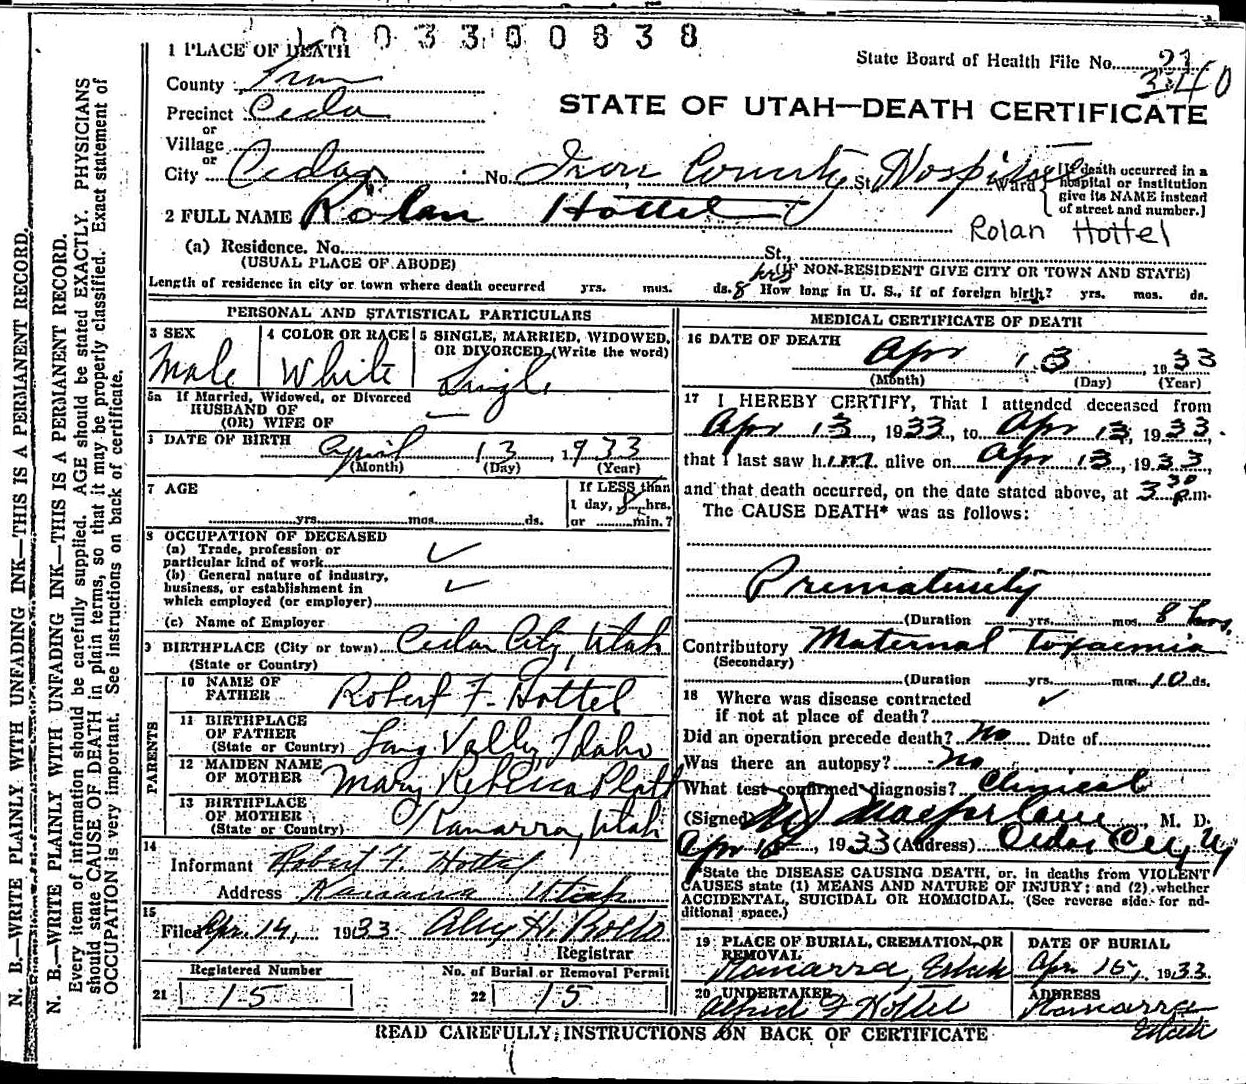 1003300838
1 PLACE OF DEATH
State Board of Health File No. 21
340
County Iron
Precinct Cedar
or
Village
or
City Cedar No. Iron County St. Hospital Ward
[If death occurred in a hospital or institution give its NAME instead of street and number.]
STATE OF UTAH—DEATH CERTIFICATE
2 FULL NAME Rolan Hottel
Rolan Hottel
(a) Residence. No. St.,
(USUAL PLACE OF ABODE) (IF NON-RESIDENT GIVE CITY OR TOWN AND STATE)
Length of residence in city or town where death occurred yrs. mos. ds. 8 hrs How long in U. S., if of foreign birth? yrs. mos. ds.
PERSONAL AND STATISTICAL PARTICULARS
3 SEX Male
4 COLOR OR RACE White
5 SINGLE, MARRIED, WIDOWED, OR DIVORCED (Write the word) Single
5a If Married, Widowed, or Divorced
HUSBAND OF
(OR) WIFE OF
DATE OF BIRTH April 13, 1933
(Month) (Day) (Year)
7 AGE
yrs. mos. ds.
If LESS than
1 day, 8 hrs.
or min.?
8 OCCUPATION OF DECEASED
(a) Trade, profession or
particular kind of work ✓
(b) General nature of industry,
business, or establishment in
which employed (or employer) ✓
(c) Name of Employer
9 BIRTHPLACE (City or town) Cedar City, Utah
(State or Country)
PARENTS
10 NAME OF FATHER Robert F. Hottel
11 BIRTHPLACE OF FATHER (State or Country) Long Valley, Idaho
12 MAIDEN NAME OF MOTHER Mary Rebecca Platt
13 BIRTHPLACE OF MOTHER (State or Country) Kanarra, Utah
14
Informant Robert F. Hottel
Address Kanarra Utah
15
Filed Apr. 14, 1933
Registrar
Registered Number
21 15
No. of Burial or Removal Permit
22 15
MEDICAL CERTIFICATE OF DEATH
16 DATE OF DEATH Apr 13, 1933
(Month) (Day) (Year)
17 I HEREBY CERTIFY, That I attended deceased from
Apr 13, 1933, to Apr 13, 1933.
that I last saw him alive on Apr 13, 1933,
and that death occurred, on the date stated above, at 3 30 p.m.
The CAUSE DEATH* was as follows:
Prematurity
(Duration yrs. mos. 8 hrs.
Contributory Maternal Toxaemia
(Secondary)
(Duration yrs. mos. 10 ds.
18 Where was disease contracted
if not at place of death? ✓
Did an operation precede death? No Date of
Was there an autopsy? No
What test confirmed diagnosis? Clinical
(Signed) Macfarlane, M. D.
Apr 1933 (Address) Cedar City, U
*State the DISEASE CAUSING DEATH, or, in deaths from VIOLENT
CAUSES state (1) MEANS AND NATURE OF INJURY; and (2) whether
ACCIDENTAL, SUICIDAL OR HOMICIDAL. (See reverse side for ad-
ditional space.)
19 PLACE OF BURIAL, CREMATION, OR REMOVAL Kanarra, Utah
DATE OF BURIAL Apr 15, 1933.
20 UNDERTAKER Alfred F Hottel
ADDRESS Kanarra Utah
READ CAREFULLY INSTRUCTIONS ON BACK OF CERTIFICATE
N. B.—WRITE PLAINLY WITH UNFADING INK—THIS IS A PERMANENT RECORD.
N. B.—WRITE PLAINLY WITH UNFADING INK—THIS IS A PERMANENT RECORD.
Every item of information should be carefully supplied. AGE should be stated EXACTLY. PHYSICIANS
should state CAUSE OF DEATH in plain terms, so that it may be properly classified. Exact statement of
OCCUPATION is very important. See instructions on back of certificate.